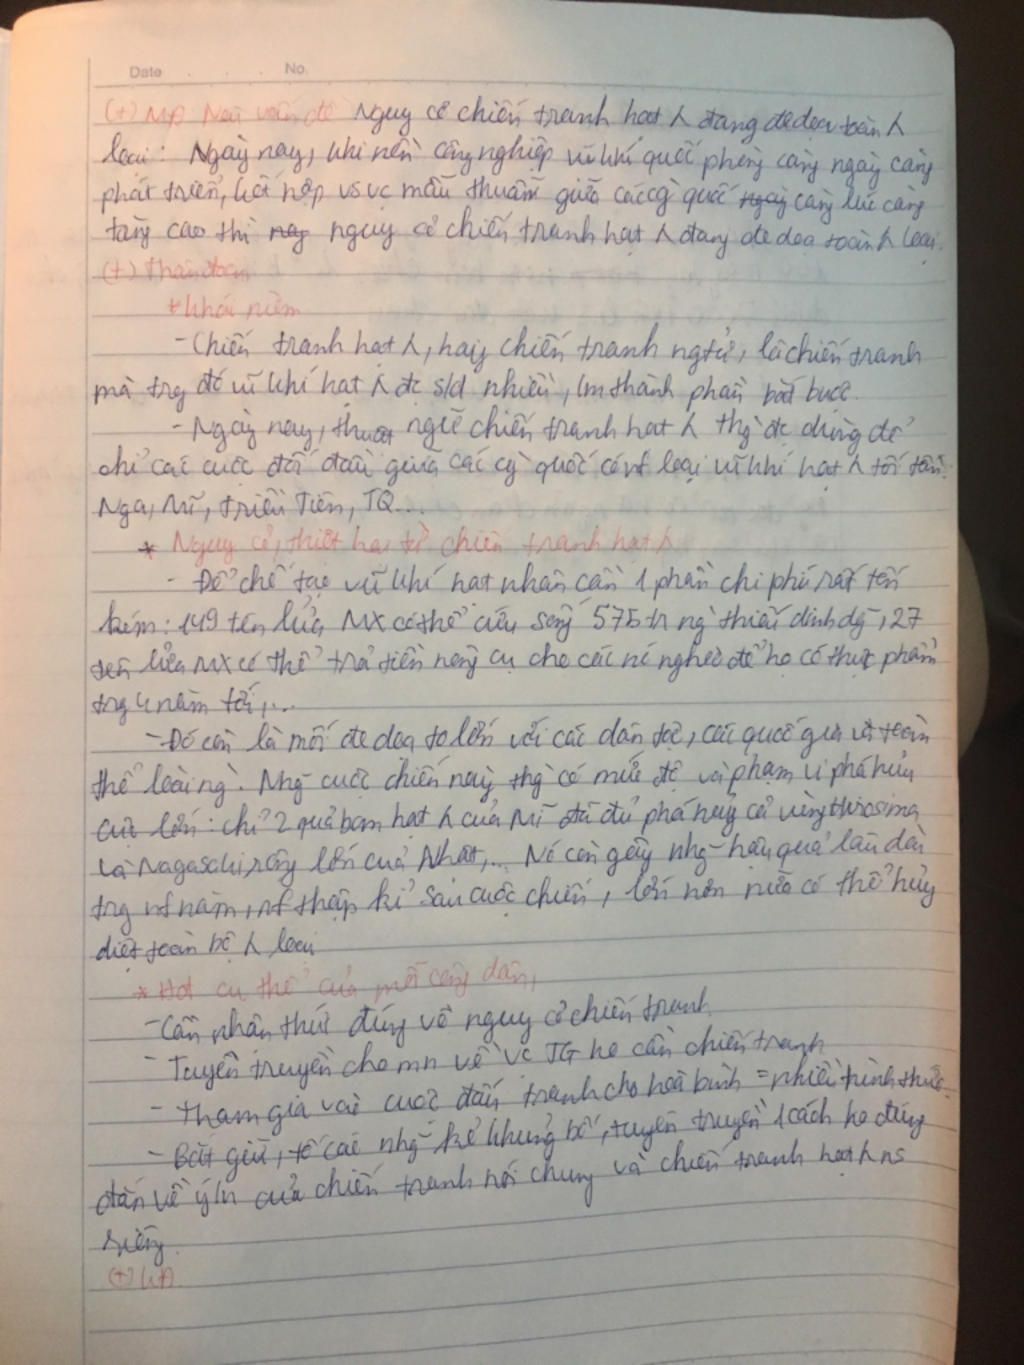 Date . . . No.
(+) MĐ Nêu vấn đề Nguy cơ chiến tranh hạt λ đang đe dọa toàn λ
loại: Ngày nay, khi nền công nghiệp vũ khí quốc phòng càng ngày càng
phát triển, kết hợp vs vc mâu thuẫn giữa các cg quốc ngày càng lúc càng
tăng cao thì nay nguy cơ chiến tranh hạt λ đang đe dọa toàn λ loại.
(+) Thân đoạn
+ khái niệm
- Chiến tranh hạt λ, hay chiến tranh ng tử, là chiến tranh
mà trg đó vũ khí hạt λ đc s/d nhiều, lm thành phần bắt buộc.
- Ngày nay, thuật ngữ chiến tranh hạt λ thg đc dùng để
chỉ các cuộc đối đầu giữa các cg quốc có loại vũ khí hạt λ tối tân:
Nga, Mĩ, Triều Tiên, TQ...
* Nguy cơ, thiệt hại từ chiến tranh hạt λ
- Để chế tạo vũ khí hạt nhân cần 1 phần chi phí rất tốn
kém: 149 tên lửa MX có thể cứu sống 575 tr ng thiếu dinh dg, 27
tên lửa MX có thể trả tiền nông cụ cho các nc nghèo để họ có thực phẩm
trg 4 năm tới,...
- Đó còn là mối đe dọa to lớn với các dân tộc, các quốc gia và toàn
thể loài ng. Nhg cuộc chiến này thg có mức độ và phạm vi phá hủy
cực lớn: chỉ 2 quả bom hạt λ của Mĩ đã đủ phá hủy cả vùng Hirosima
và Nagasaki rộng lớn của Nhật,... Nó còn gây nhg hậu quả lâu dài
trg năm, thập kỉ sau cuộc chiến, lớn hơn nữa có thể hủy
diệt toàn bộ λ loại
* Hđ cụ thể của mỗi công dân,
- Cần nhận thức đúng về nguy cơ chiến tranh
- Tuyên truyền cho mn về vc TG ko cần chiến tranh
- Tham gia vào cuộc đấu tranh cho hoà bình = nhiều hình thức.
- Bắt giữ, tố cáo nhg kẻ khủng bố, tuyên truyền 1 cách ko đúng
đắn về ý của chiến tranh nói chung và chiến tranh hạt λ ns
riêng.
(+) KĐ